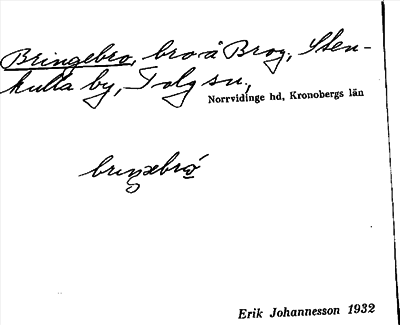 Bringebro, bro å Brog, Sten-
kulla by, Tolg sn,
Norrvidinge hd, Kronobergs län
briŋəbró
Erik Johannesson 1932